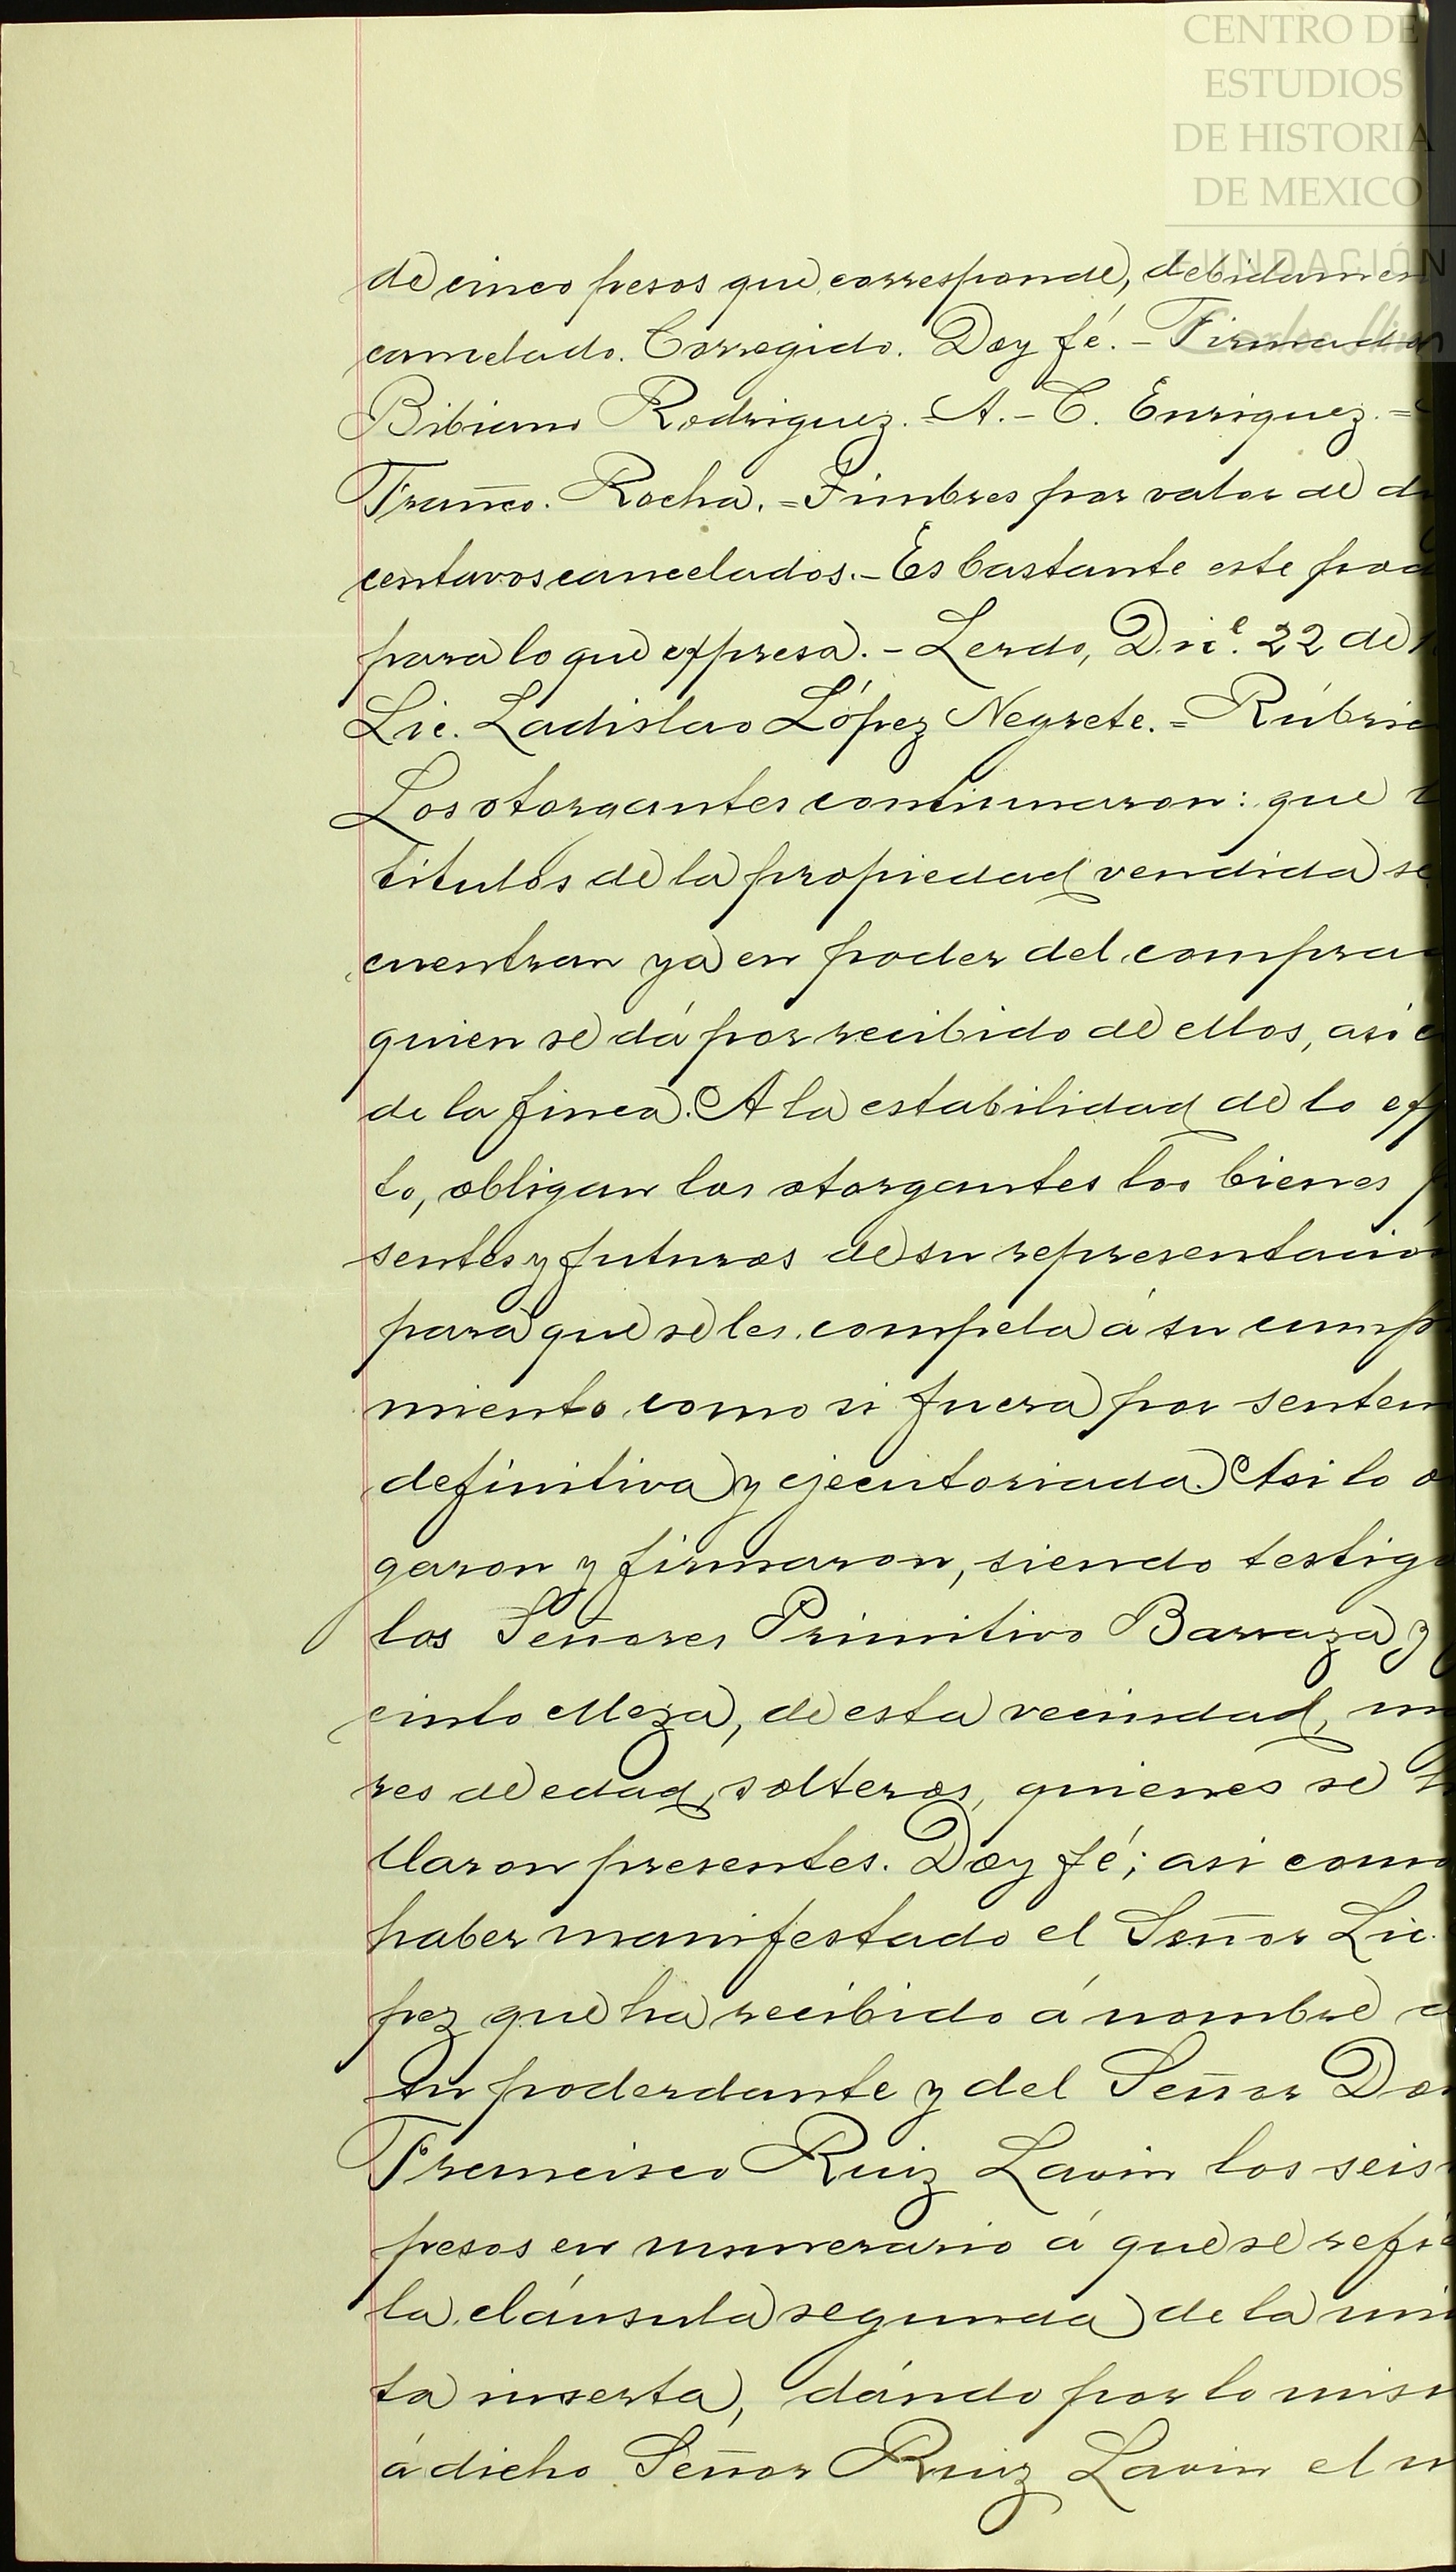 CENTRO DE
ESTUDIOS
DE HISTORIA
DE MEXICO
FUNDACIÓN
de cinco pesos que corresponde, debidamen
cancelado. Corregido. Doy fé. - Firmado
Bibiano Rodriguez. = A. - C. Enriquez. =
Franco. Rocha. = Timbres por valor de
centavos cancelados. - Es bastante este pod
para lo que expresa. - Lerdo, Dice. 22 de
Lic. Ladislao López Negrete. = Rúbric
Los otorgantes continuaron: que
titulos de la propiedad vendida se
cuentran ya en poder del comprad
quien se dá por recibido de ellos, asi
de la finca. A la estabilidad de lo exp
to, obligan los otorgantes los bienes
sentes y futuros de su representación
para que se les compela á su cump
miento como si fuera por senten
definitiva y ejecutoriada. Asi lo o
garon y firmaron, siendo testigo
los Señores Primitivo Barraza y
cinto Meza, de esta vecindad, m
res de edad, solteros, quienes se
llaron presentes. Doy fé; asi como
haber manifestado el Señor Lic.
pez que ha recibido á nombre
su poderdante y del Señor Don
Francisco Ruiz Lavin los seis
pesos en numerario á que se refie
la cláusula segunda de la min
ta inserta, dándo por lo mism
á dicho Señor Ruiz Lavin el m